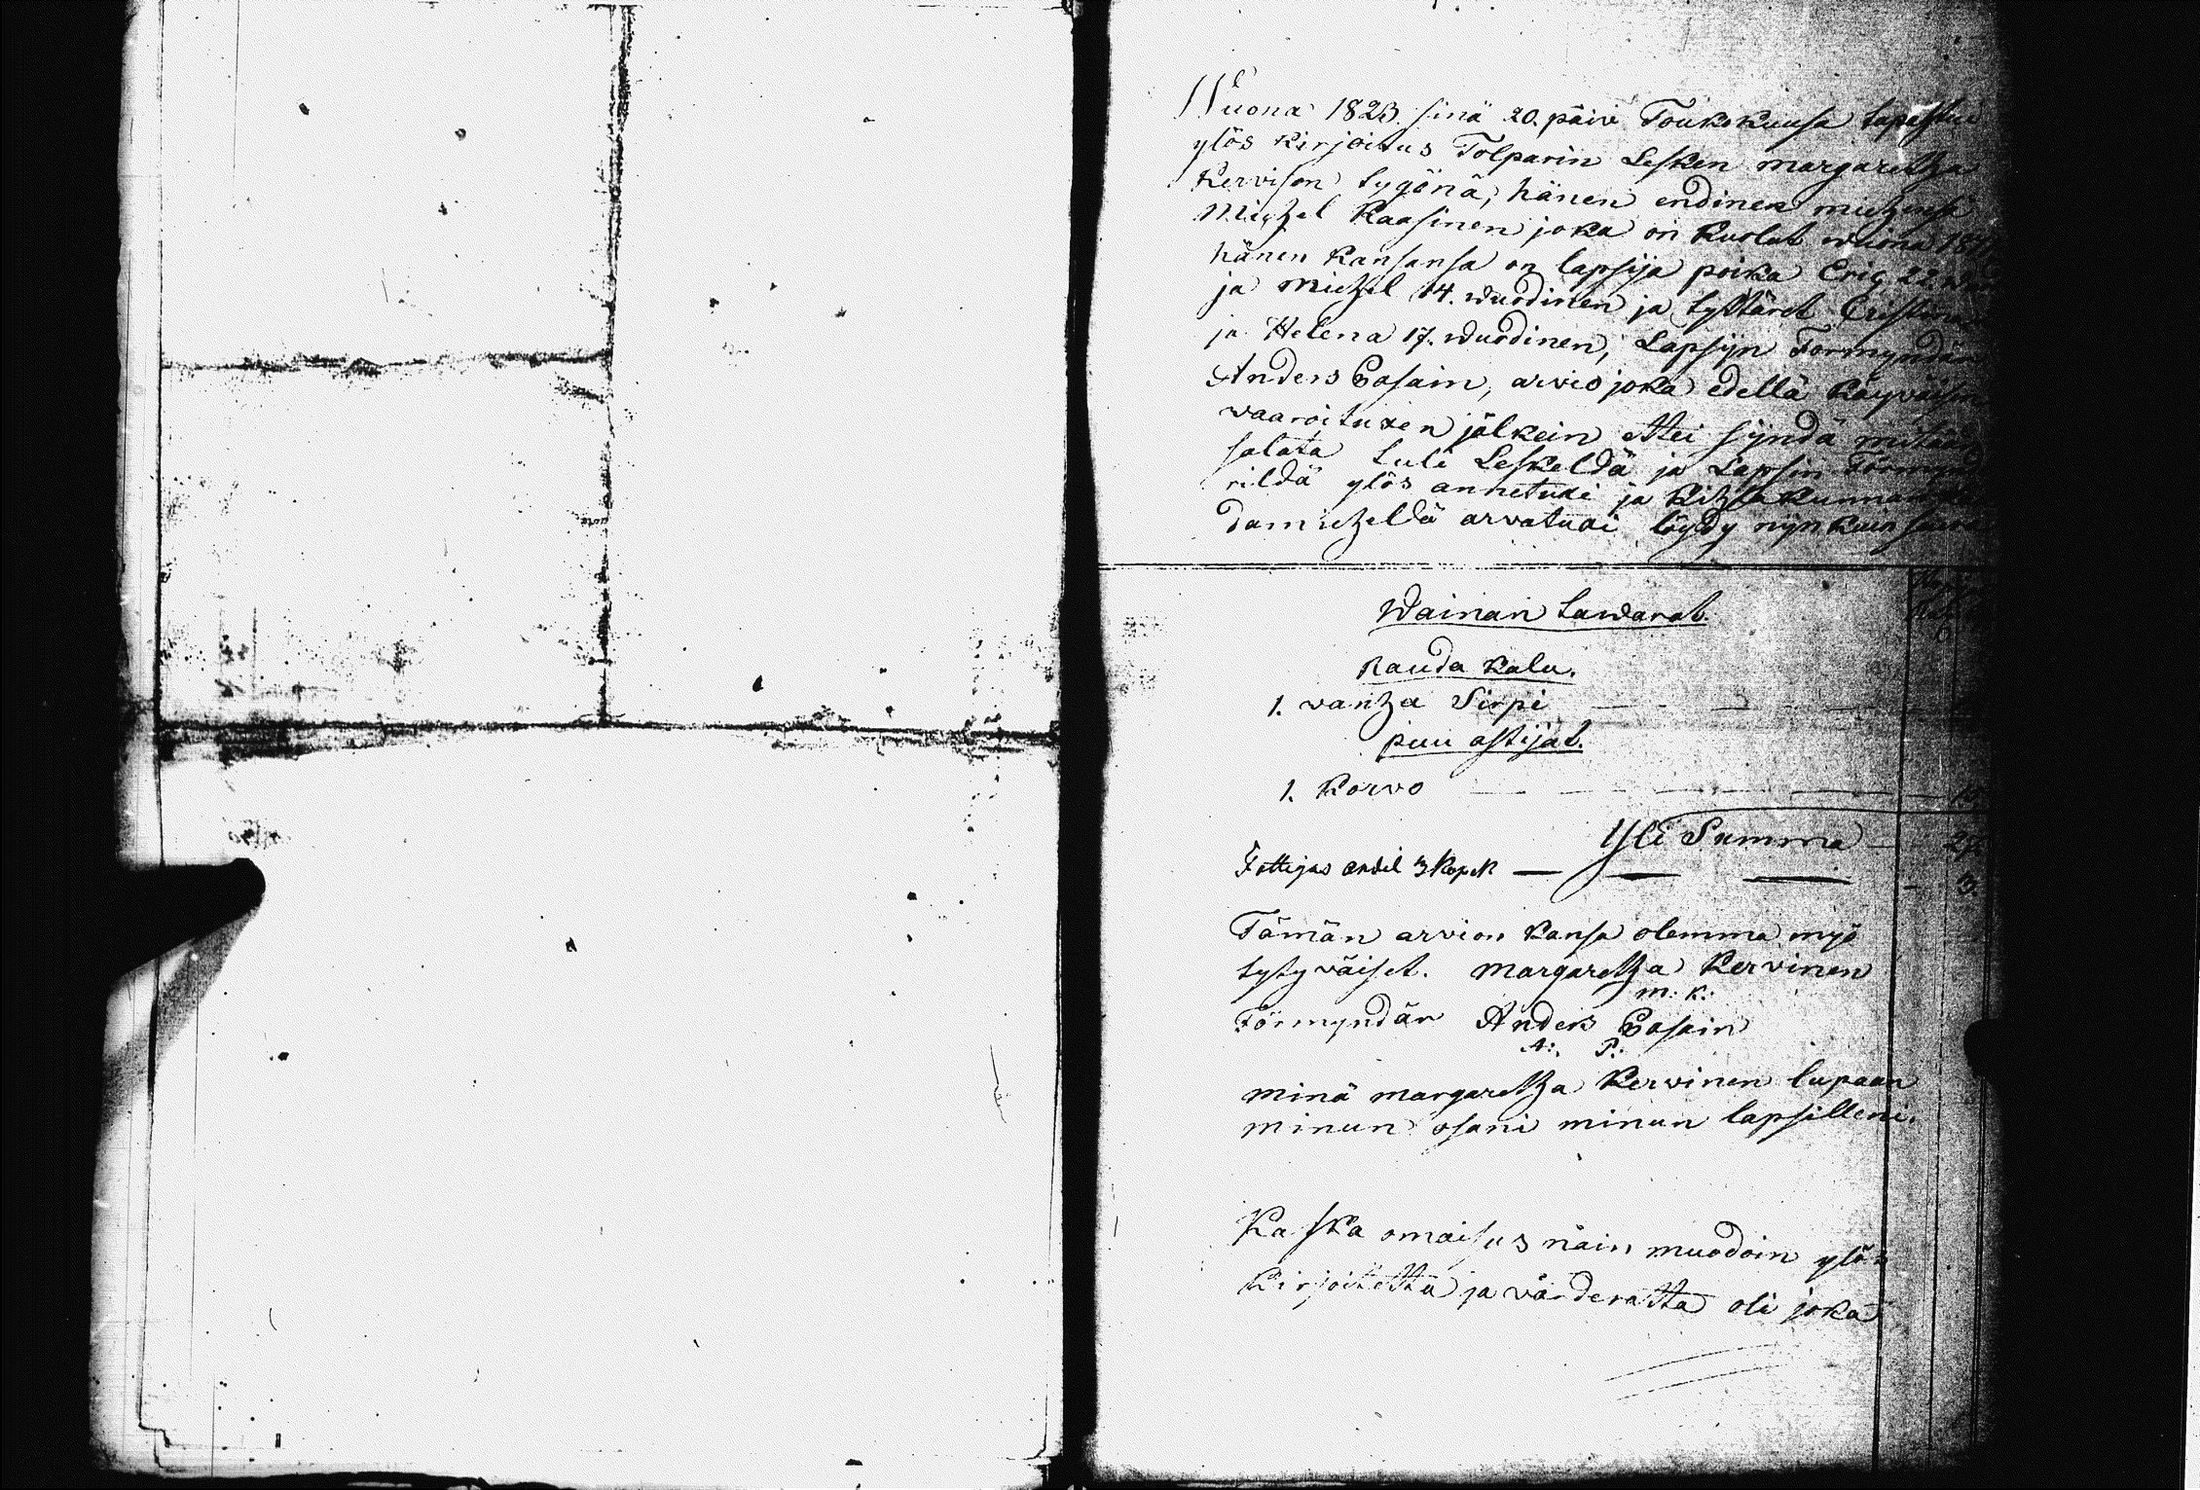 Wuona 1823. sinä 20. päivä Toukokuusa tapahtui
ylös kirjoitus Tolparin Lesken margaretha
Kervisen tygönä; hänen endinen miehensä
Michel Kaasinen joka on kuolut wuona
hänen kansansa on lapsija poika Eric 22.
ja Michel 14. wuodinen ja tyttäret Cristina
ja Helena 17. wuodinen, Lapsijn Formyndär
Anders Eosain, arvio joka edellä käypäisen
waaroituxen jälkein ettei sijndä mitän
salata tuli Leskeldä ja Lapsin Förmyndä
rildä ylös annetuxi ja kihlakunnan
damieheldä arvatuxi löydy nijnkuin
Wainan tawarat.
Rauda kalu.
1. vanha Sirpi
puu astijat.
1. Korvo
Yli Summa
Fattigas andel 3 Kopek 3.
Tämän arvion kansa olemma myö
tytyväiset. Margaretha Kervinen
m: K:
Förmyndär Anders Eosain
A: P:
minä margaretha Kervinen lupaan
minun osani minun lapsilleni.
Koska omaisus näin muodoin ylös
kirjoitettu ja värderattu oli joka